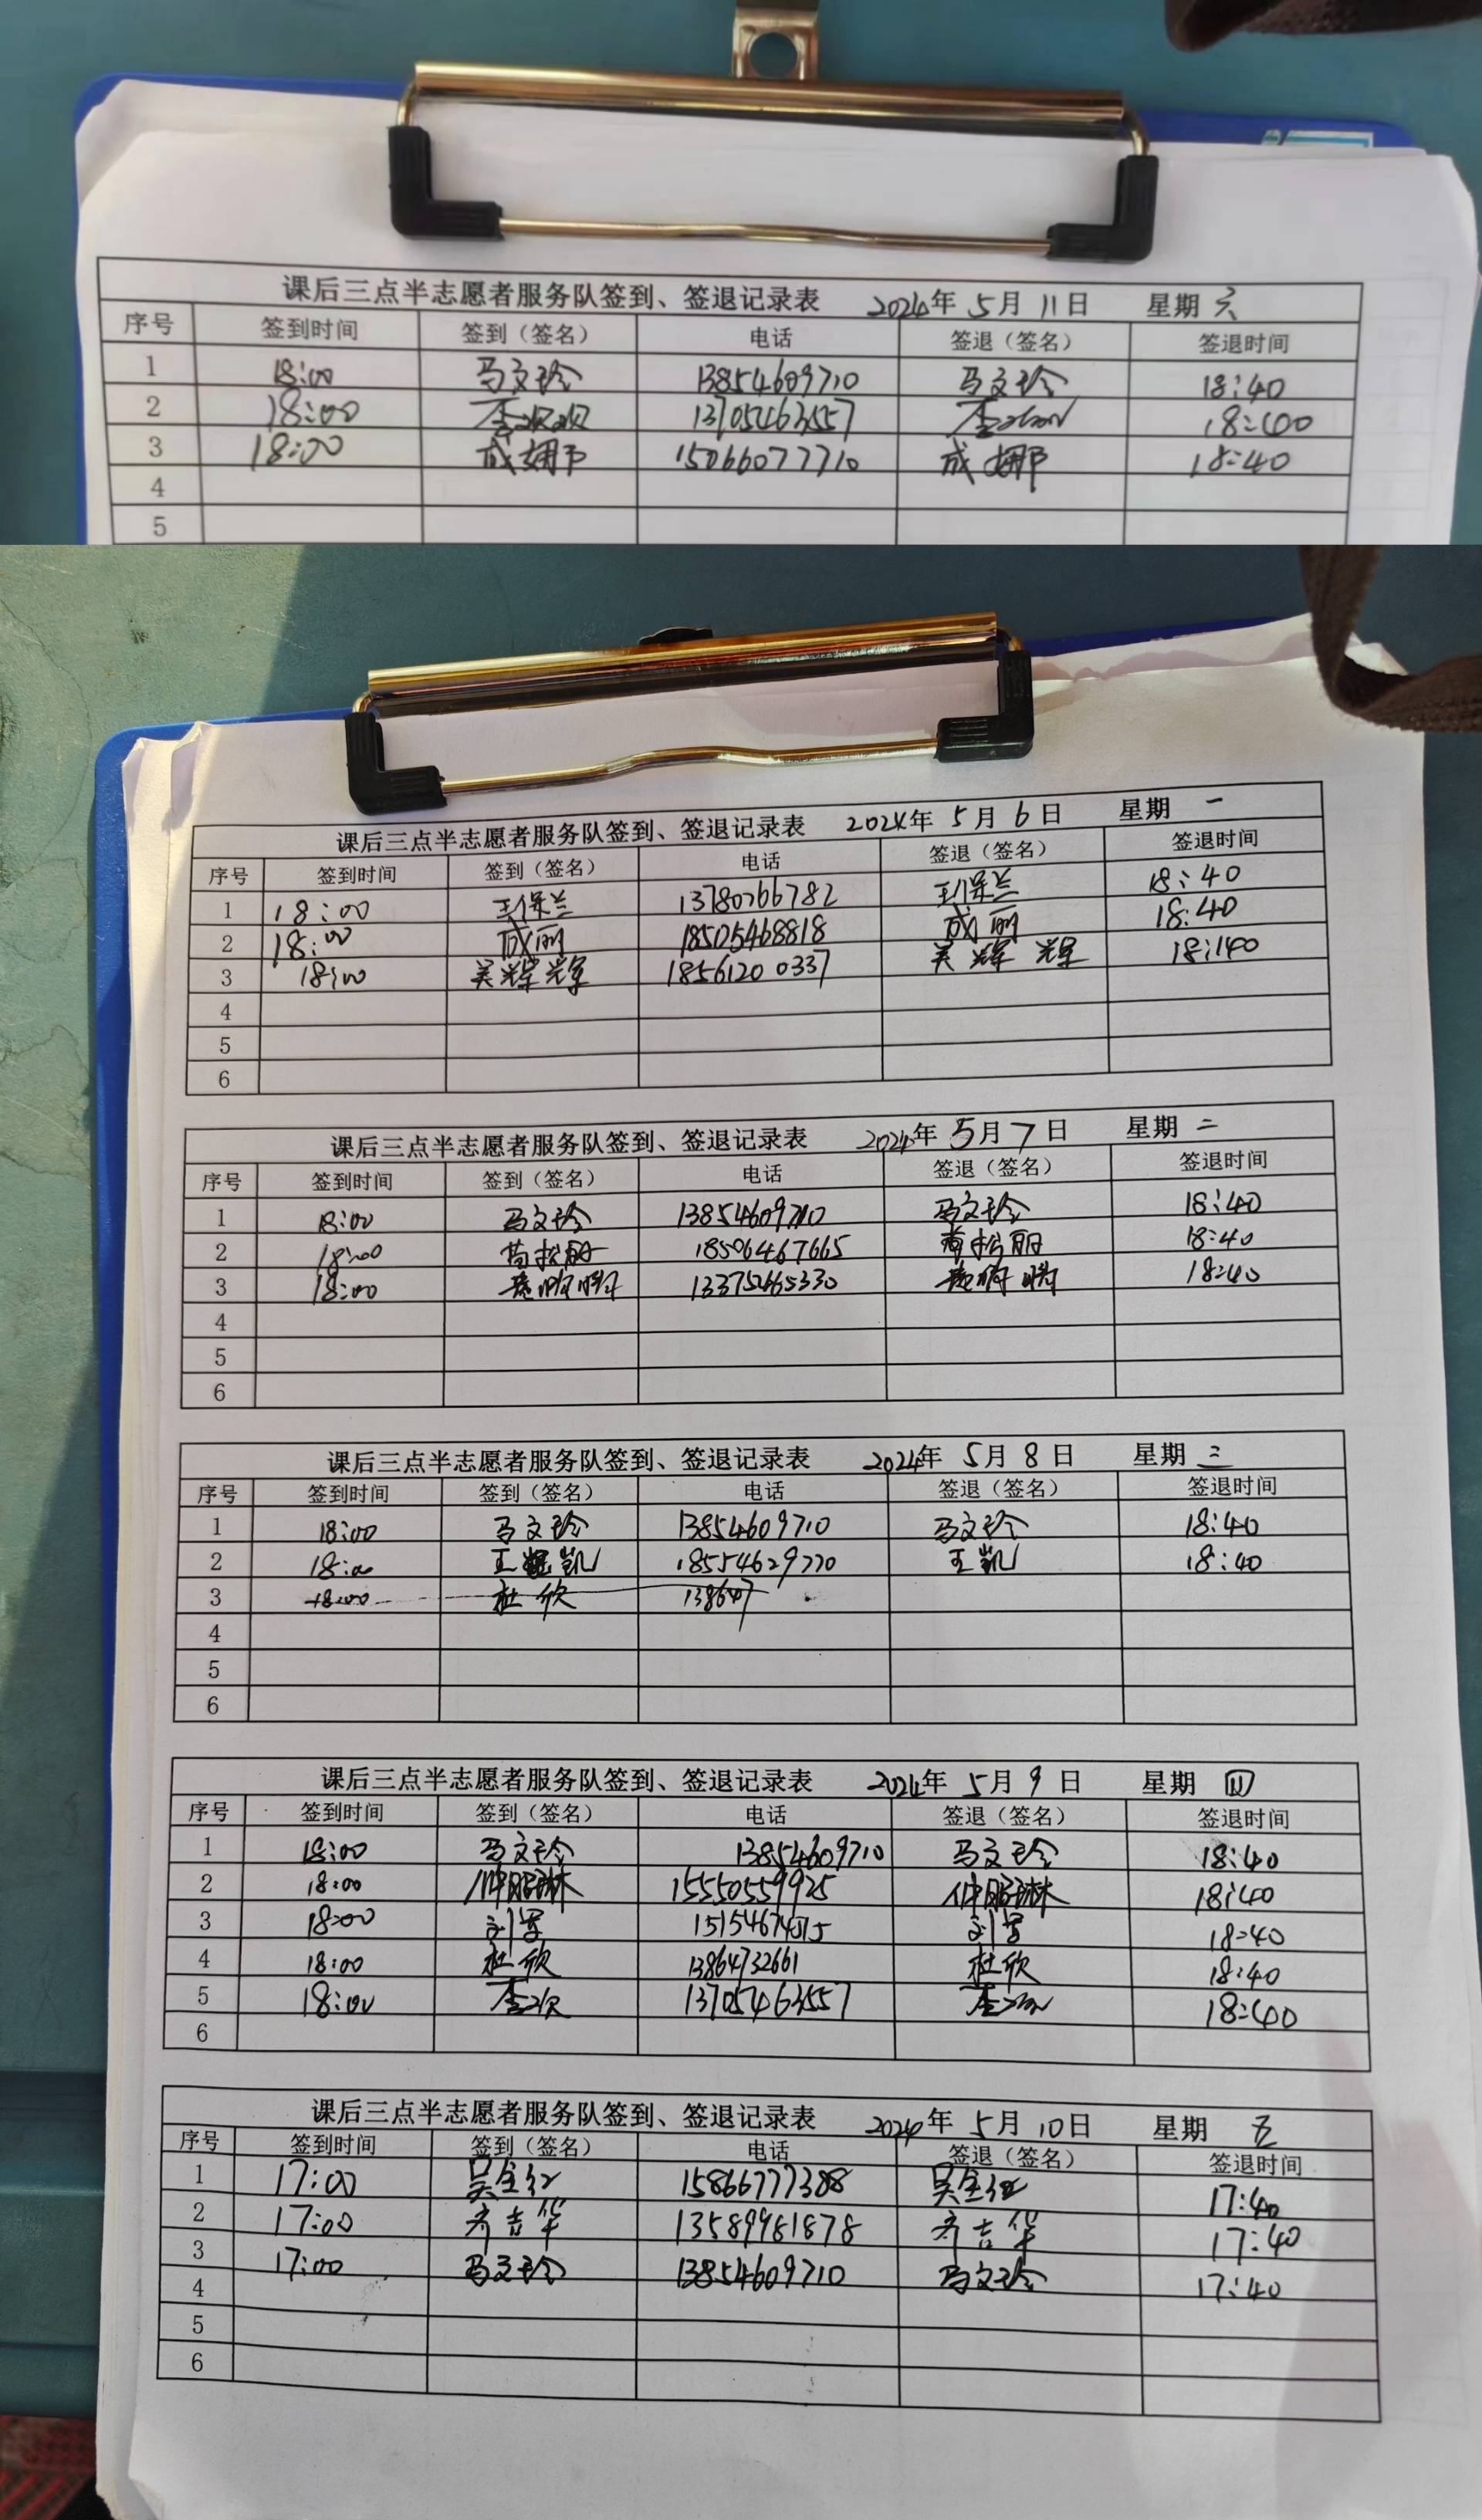 课后三点半志愿者服务队签到、签退记录表 2024年 5月 11日 星期 六
序号 签到时间 签到（签名） 电话 签退（签名） 签退时间
1 18:00 马文玲 13854609710 马文玲 18:40
2 18:00 李欢欢 13705463557 18:40
3 18:00 成娜 15066077710 成娜 18:40
4
5
课后三点半志愿者服务队签到、签退记录表 2024年 5月 6日 星期 一
序号 签到时间 签到（签名） 电话 签退（签名） 签退时间
1 18:00 王保兰 13780766782 王保兰 18:40
2 18:00 成丽 18505468818 成丽 18:40
3 18:00 吴辉辉 18561200337 吴辉辉 18:40
4
5
6
课后三点半志愿者服务队签到、签退记录表 2024年 5月 7日 星期 二
序号 签到时间 签到（签名） 电话 签退（签名） 签退时间
1 18:00 马文玲 13854609710 马文玲 18:40
2 18:00 18506467665 18:40
3 18:00 13375465330 18:40
4
5
6
课后三点半志愿者服务队签到、签退记录表 2024年 5月 8日 星期 三
序号 签到时间 签到（签名） 电话 签退（签名） 签退时间
1 18:00 马文玲 13854609710 马文玲 18:40
2 18:00 王凯 18554629770 王凯 18:40
3 18:00 杜欣 138647
4
5
6
课后三点半志愿者服务队签到、签退记录表 2024年 5月 9日 星期 四
序号 签到时间 签到（签名） 电话 签退（签名） 签退时间
1 18:00 马文玲 13854609710 马文玲 18:40
2 18:00 15550559925 18:40
3 18:00 18:40
4 18:00 杜欣 13864732661 杜欣 18:40
5 18:00 李欢 13705463557 18:40
6
课后三点半志愿者服务队签到、签退记录表 2024年 5月 10日 星期 五
序号 签到时间 签到（签名） 电话 签退（签名） 签退时间
1 17:00 吴金红 15866777388 吴金红 17:40
2 17:00 齐吉华 13589981878 齐吉华 17:40
3 17:00 马文玲 13854609710 马文玲 17:40
4
5
6